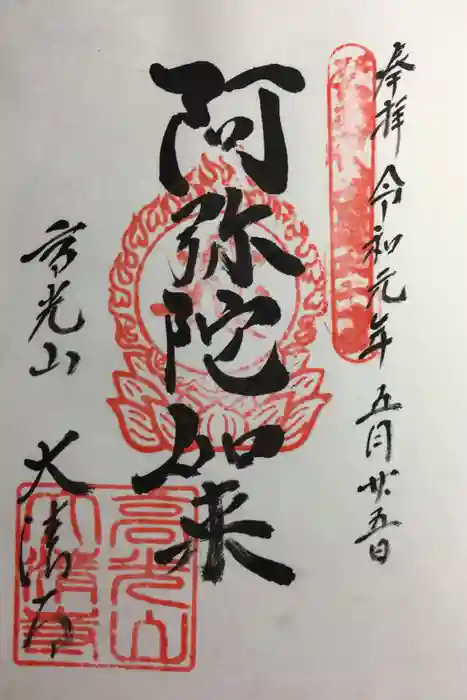 奉拝 令和元年 五月廿五日
阿弥陀如来
高光山
大清寺
高光山
大清章